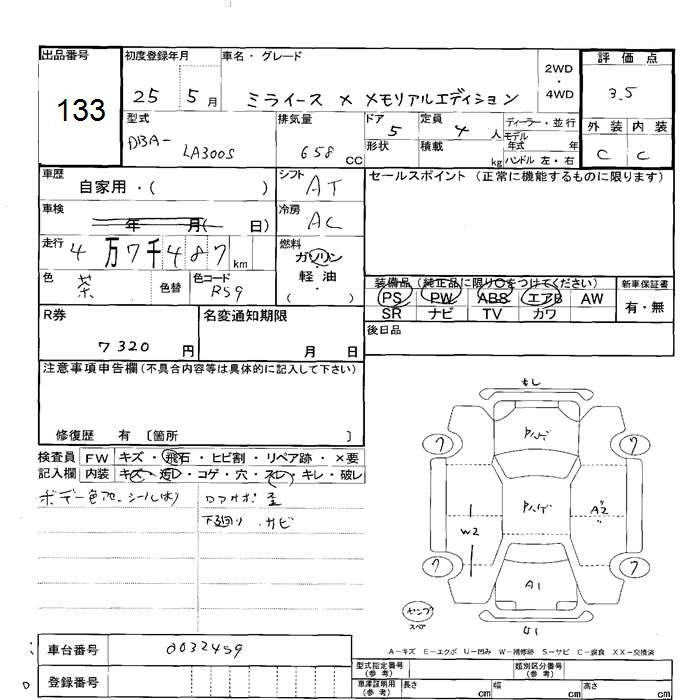 出品番号 初度登録年月 車名・グレード 2WD・4WD 評価点
133
25 5月 ミライース X メモリアルエディション 3.5
型式 DBA- LA300S 排気量 658 CC ドア 5 定員 4 人 ディーラー・並行
形状 積載 kg モデル年式 年 ハンドル 左・右
外装 内装
C C
車歴 自家用・( ) シフト AT セールスポイント (正常に機能するものに限ります)
車検 年 月( 日) 冷房 AC
走行 4万7千487km 燃料 ガソリン・軽油 ( )
色 茶 色替 色コード R59
装備品 (純正品に限り○をつけてください) 新車保証書
PS PW ABS エアB AW 有・無
SR ナビ TV カワ
R券 7320 円 名変通知期限 月 日 後日品
注意事項申告欄 (不具合内容等は具体的に記入して下さい)
修復歴 有 〔箇所 〕
検査員 FW キズ・飛石・ヒビ割・リペア跡・×要
記入欄 内装 キズ・汚レ・コゲ・穴・スレ・キレ・破レ
下廻り サビ
もし
ワ ワ
W2 A2
ワ ワ
A1
U1
A-キズ E-エクボ U-凹み W-補修跡 S-サビ C-腐食 XX-交換済
車台番号 0032459 型式指定番号 (参考) 類別区分番号 (参考)
登録番号 車庫証明用 (参考) 長さ cm 幅 cm 高さ cm